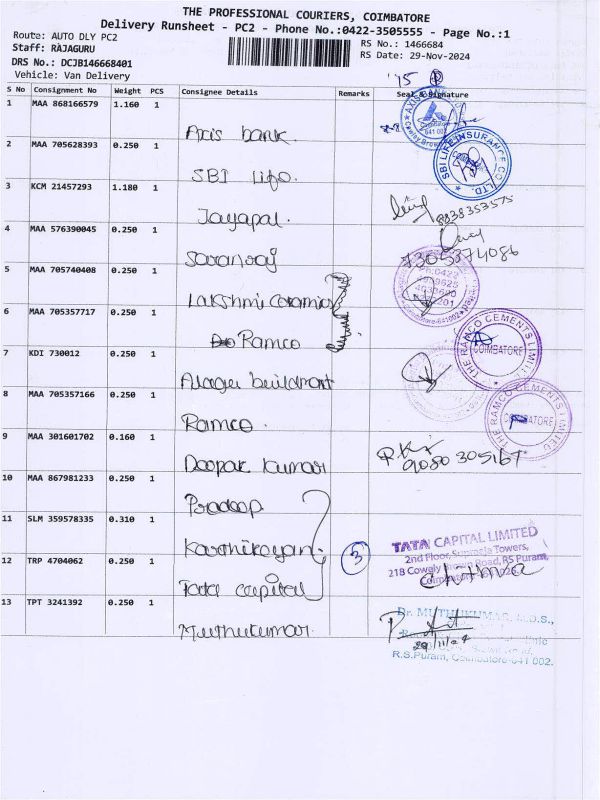 THE PROFESSIONAL COURIERS, COIMBATORE
Delivery Runsheet - PC2 - Phone No.:0422-3505555 - Page No.:1
Route: AUTO DLY PC2
Staff: RAJAGURU
RS No.: 1466684
DRS No.: DCJB146668401
RS Date: 29-Nov-2024
Vehicle: Van Delivery
'15
S No Consignment No Weight PCS Consignee Details Remarks Seal & Signature
1 MAA 868166579 1.160 1
Axis bank
AXIS BAN
Coimbatore
641 002
2 MAA 705628393 0.250 1
SBI Life.
SBI LIFE INSURANCE CO. LTD.
3 KCM 21457293 1.180 1
Jayapal.
8838353575
4 MAA 576390045 0.250 1
Saravanaj
7305374086
5 MAA 705740408 0.250 1
Lakshmi Ceramics
6 MAA 705357717 0.250 1
Ramco
THE RAMCO CEMENTS LIMITED
COIMBATORE
7 KDI 730012 0.250 1
Alager buildmart
8 MAA 705357166 0.250 1
Ramco.
THE RAMCO CEMENTS LIMITED
COIMBATORE
9 MAA 301601702 0.160 1
Deepak Kumar
9080 305167
10 MAA 867981233 0.250 1
Pradeep
11 SLM 359578335 0.310 1
Karthikeyan
3
TATA CAPITAL LIMITED
2nd Floor, Towers,
21B Cowely Brown Road, RS Puram,
12 TRP 4704062 0.250 1
Tata capital
13 TPT 3241392 0.250 1
Muthukumar
Dr. MUTHUKUMAR, M.D.S.,
29/11/24
R.S.Puram, Coimbatore-641 002.